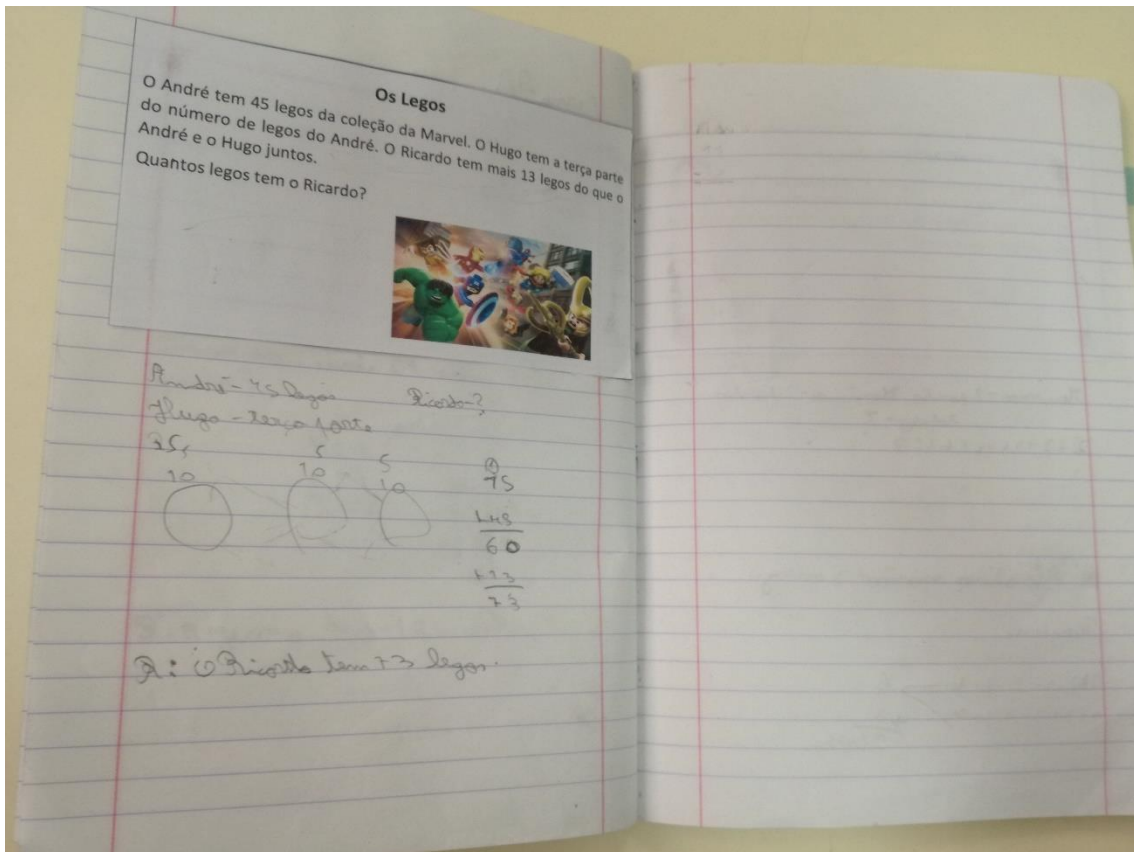 Os Legos
O André tem 45 legos da coleção da Marvel. O Hugo tem a terça parte
do número de legos do André. O Ricardo tem mais 13 legos do que o
André e o Hugo juntos.
Quantos legos tem o Ricardo?
André - 45 legos Ricardo - ?
Hugo - terça parte
5 5
10 10 10
15
+45
60
+13
73
R: O Ricardo tem 73 legos.